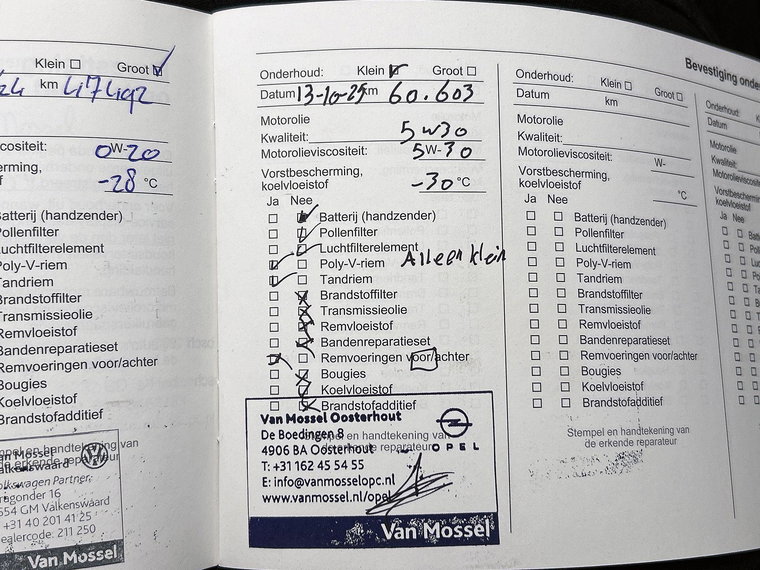 Klein Groot
km 47492
scositeit: 0W-20
erming, -28 °C
Batterij (handzender)
Pollenfilter
Luchtfilterelement
Poly-V-riem
Tandriem
Brandstoffilter
Transmissieolie
Remvloeistof
Bandenreparatieset
Remvoeringen voor/achter
Bougies
Koelvloeistof
Brandstofadditief
Volkswagen Partner
5554 GM Valkenswaard
+31 40 201 41 25
ealercode: 211 250
Van Mossel
Onderhoud: Klein Groot
Datum 13-10-25 km 60.603
Motorolie
Kwaliteit: 5W30
Motorolieviscositeit: 5W-30
Vorstbescherming,
koelvloeistof -30 °C
Ja Nee
Batterij (handzender)
Pollenfilter
Luchtfilterelement
Poly-V-riem Alleen klein
Tandriem
Brandstoffilter
Transmissieolie
Remvloeistof
Bandenreparatieset
Remvoeringen voor/achter
Bougies
Koelvloeistof
Brandstofadditief
Van Mossel Oosterhout
De Boedingen 8
Stempel en handtekening van
4906 BA Oosterhout
de erkende reparateur
OPEL
T: +31 162 45 54 55
E: info@vanmosselopc.nl
www.vanmossel.nl/opel
Van Mossel
Bevestiging onde
Onderhoud: Klein Groot
Datum km
Motorolie
Kwaliteit:
Motorolieviscositeit: W-
Vorstbescherming,
koelvloeistof °C
Ja Nee
Batterij (handzender)
Pollenfilter
Luchtfilterelement
Poly-V-riem
Tandriem
Brandstoffilter
Transmissieolie
Remvloeistof
Bandenreparatieset
Remvoeringen voor/achter
Bougies
Koelvloeistof
Brandstofadditief
Stempel en handtekening van
de erkende reparateur
Onderhoud:
Datum
Motorolie
Kwaliteit:
Motorolieviscosite
Vorstbescherming
koelvloeistof
Ja Nee